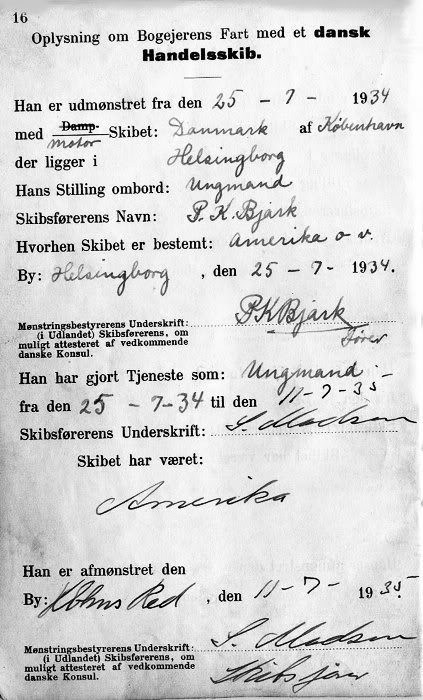 16
Oplysning om Bogejerens Fart med et dansk
Handelsskib.
Han er udmønstret fra den 25 - 7 - 1934
med Damp- Skibet: Danmark af København
motor
der ligger i Helsingborg
Hans Stilling ombord: Ungmand
Skibsførerens Navn: P. K. Bjärk
Hvorhen Skibet er bestemt: Amerika o v.
By: Helsingborg, den 25 - 7 - 1934.
Mønstringsbestyrerens Underskrift: PKBjärk
(i Udlandet) Skibsførerens, om
muligt attesteret af vedkommende
danske Konsul.
fører
Han har gjort Tjeneste som: Ungmand
fra den 25 - 7-34 til den 11-7-35
Skibsførerens Underskrift: S. Madsen
Skibet har været:
Amerika
Han er afmønstret den
By: Kbhns Red, den 11-7- 1935.
Mønstringsbestyrerens Underskrift: S. Madsen
(i Udlandet) Skibsførerens, om
muligt attesteret af vedkommende
danske Konsul.
Skibsfører